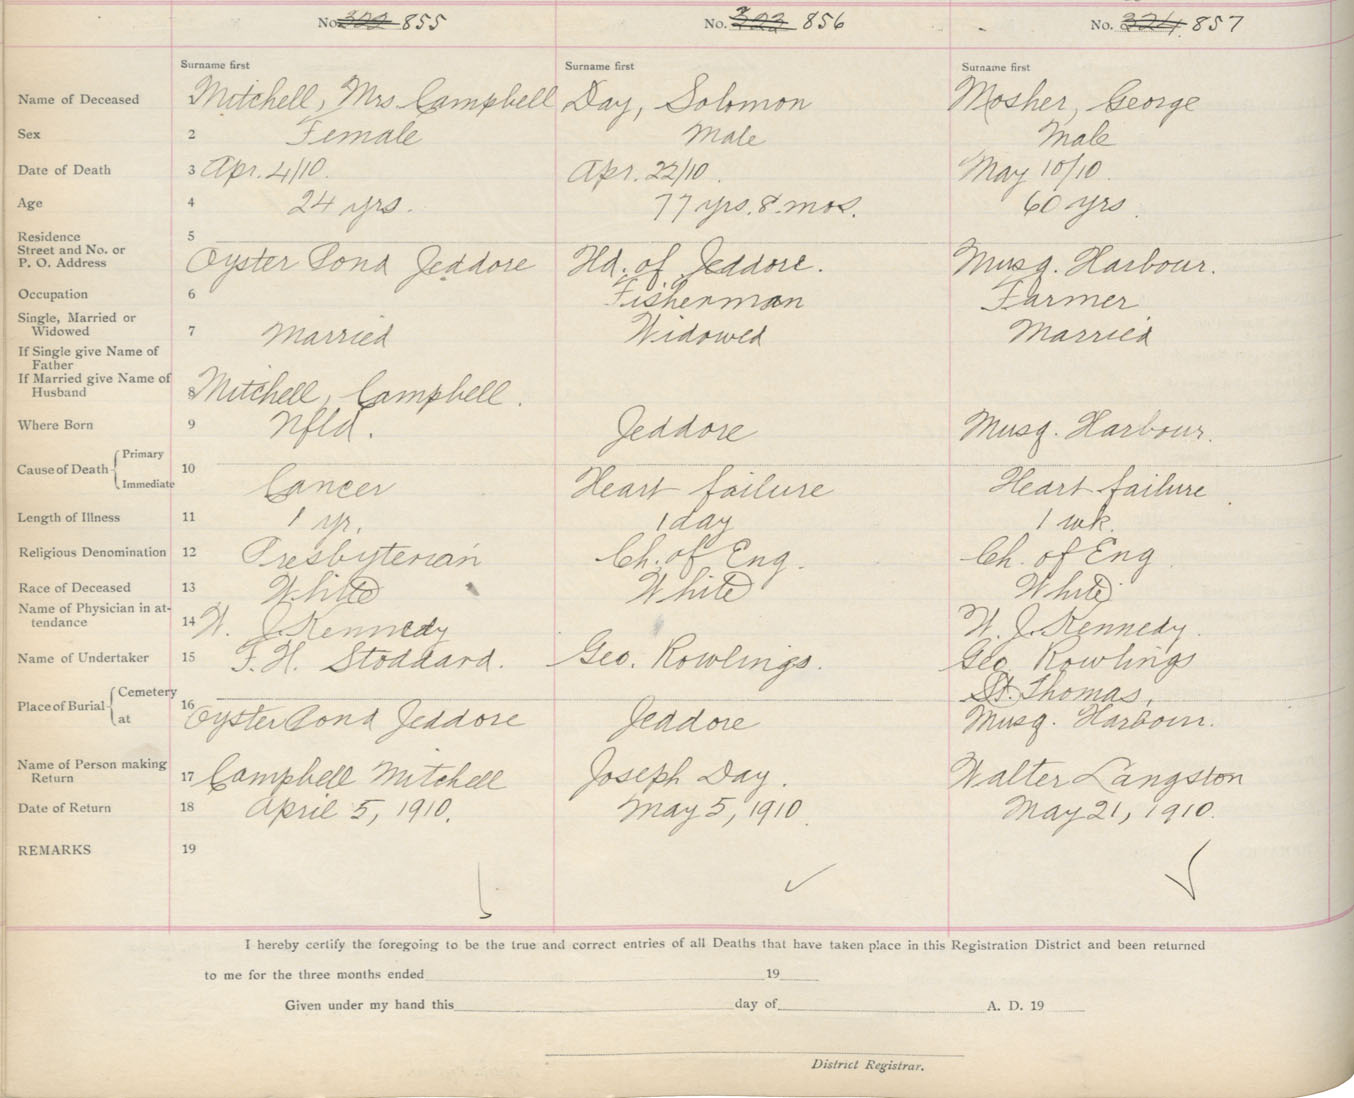 No. 322 855 No. 323 856 No. 324. 857
Surname first Surname first Surname first
Name of Deceased 1 Mitchell, Mrs Campbell Day, Solomon Mosher, George
Sex 2 Female Male Male
Date of Death 3 Apr. 4/10. Apr. 22/10. May 10/10.
Age 4 24 yrs. 77 yrs. 8 mos. 60 yrs.
Residence 5
Street and No. or
P. O. Address Oyster Pond Jeddore Hd. of Jeddore. Musq. Harbour.
Occupation 6 Fisherman Farmer
Single, Married or
Widowed 7 Married Widowed Married
If Single give Name of
Father
If Married give Name of
Husband 8 Mitchell, Campbell.
Where Born 9 Nfld. Jeddore Musq. Harbour.
Cause of Death { Primary 10
Immediate Cancer Heart failure Heart failure
Length of Illness 11 1 yr. 1 day 1 wk.
Religious Denomination 12 Presbyterian Ch. of Eng. Ch. of Eng
Race of Deceased 13 White White White
Name of Physician in at-
tendance 14 W. J. Kennedy W. J. Kennedy.
Name of Undertaker 15 F. H. Stoddard. Geo. Rowlings. Geo. Rowlings
Place of Burial { Cemetery 16 St. Thomas,
at Oyster Pond Jeddore Jeddore Musq. Harbour.
Name of Person making
Return 17 Campbell Mitchell Joseph Day. Walter Langston
Date of Return 18 April 5, 1910. May 5, 1910. May 21, 1910.
REMARKS 19
I hereby certify the foregoing to be the true and correct entries of all Deaths that have taken place in this Registration District and been returned
to me for the three months ended 19
Given under my hand this day of A. D. 19
District Registrar.